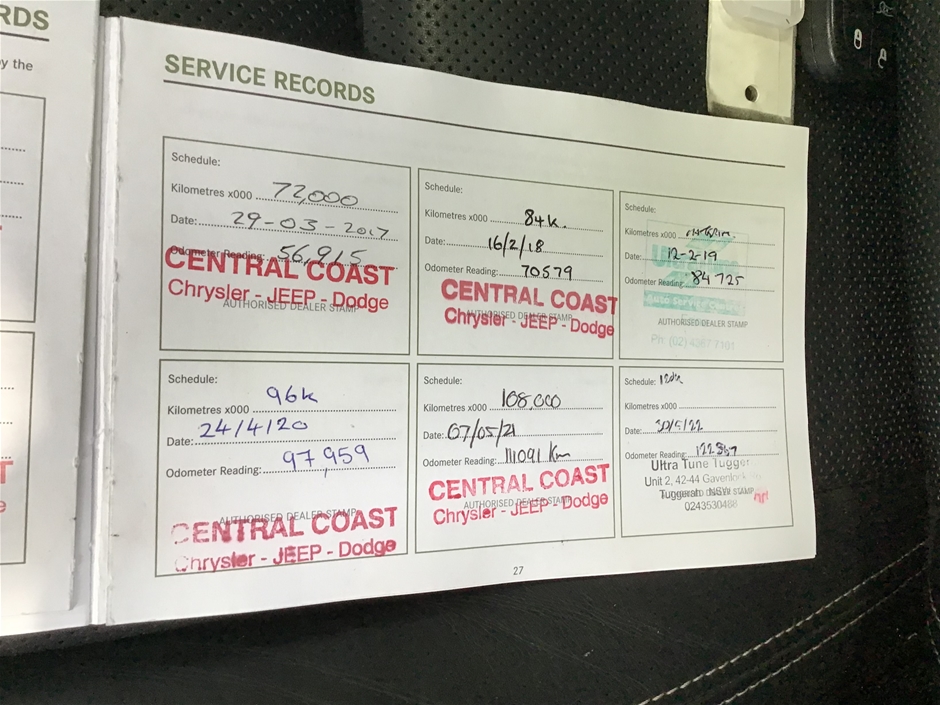 RDS
y the
SERVICE RECORDS
Schedule:
Kilometres x000 72,000
Date: 29-03-2017
Odometer Reading: 56,915
CENTRAL COAST
Chrysler - JEEP - Dodge
AUTHORISED DEALER STAMP
Schedule:
Kilometres x000 84k.
Date: 16/2/18
Odometer Reading: 70579
CENTRAL COAST
AUTHORISED DEALER STAMP
Chrysler - JEEP - Dodge
Schedule:
Kilometres x000
Date: 12-2-19
Odometer Reading: 84 725
Auto Service
AUTHORISED DEALER STAMP
Ph: (02) 4367 7161
Schedule:
Kilometres x000 96k
Date: 24/4/20
Odometer Reading: 97,959
AUTHORISED DEALER STAMP
CENTRAL COAST
Chrysler - JEEP - Dodge
Schedule:
Kilometres x000 108,000
Date: 07/05/21
Odometer Reading: 111091 Km
CENTRAL COAST
AUTHORISED DEALER STAMP
Chrysler - JEEP - Dodge
Schedule: 120k
Kilometres x000
Date: 30/5/22
Odometer Reading: 122887
Ultra Tune Tugger
Unit 2, 42-44 Gavenlock
Tuggerah NSW STAMP
0243530488
27